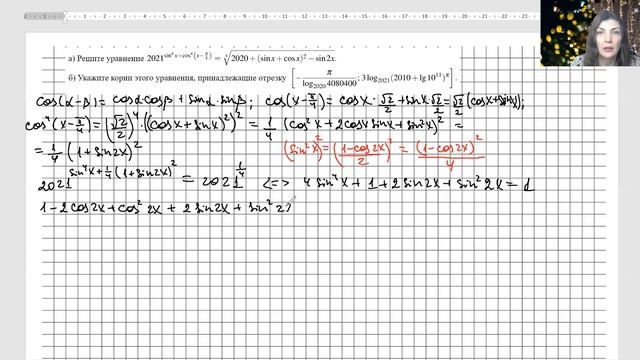 а) Решите уравнение 2021^{sin⁴x+cos⁴(x−π/4)} = ⁴√(2020 + (sin x + cos x)² − sin 2x).
б) Укажите корни этого уравнения, принадлежащие отрезку [−π/log₂₀₂₀4080400; 3log₂₀₂₁(2010 + lg10¹¹)^π].
cos(α-β) = cosα·cosβ + sinα·sinβ; cos(x-π/4) = cosx·√2/2 + sinx·√2/2 = √2/2 (cosx+sinx);
cos⁴(x-π/4) = (√2/2)⁴·((cosx+sinx)²)² = 1/4 (cos²x+2cosx sinx+sin²x)² =
= 1/4 (1+sin2x)² (sin²x)² = ((1-cos2x)/2)² = (1-cos2x)²/4
2021^{sin⁴x+1/4(1+sin2x)²} = 2021^{1/4} <=> 4sin⁴x + 1 + 2sin2x + sin²2x = 1
1-2cos2x+cos²2x + 2sin2x + sin²2x